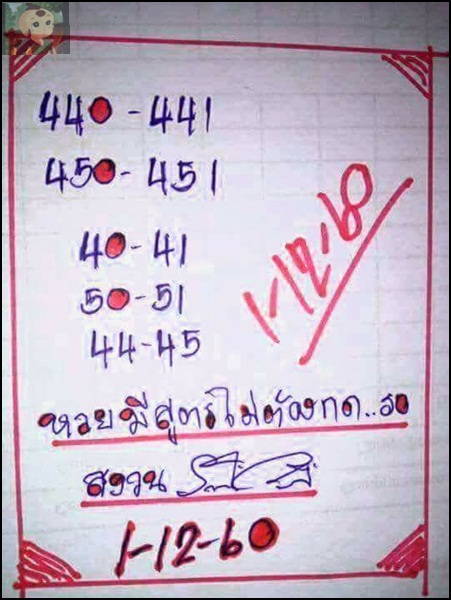 440-441
450-451
40-41
50-51
44-45
1-12-60
หวยมีสูตรไม่ต้องกด..รอ
สงวน
1-12-60